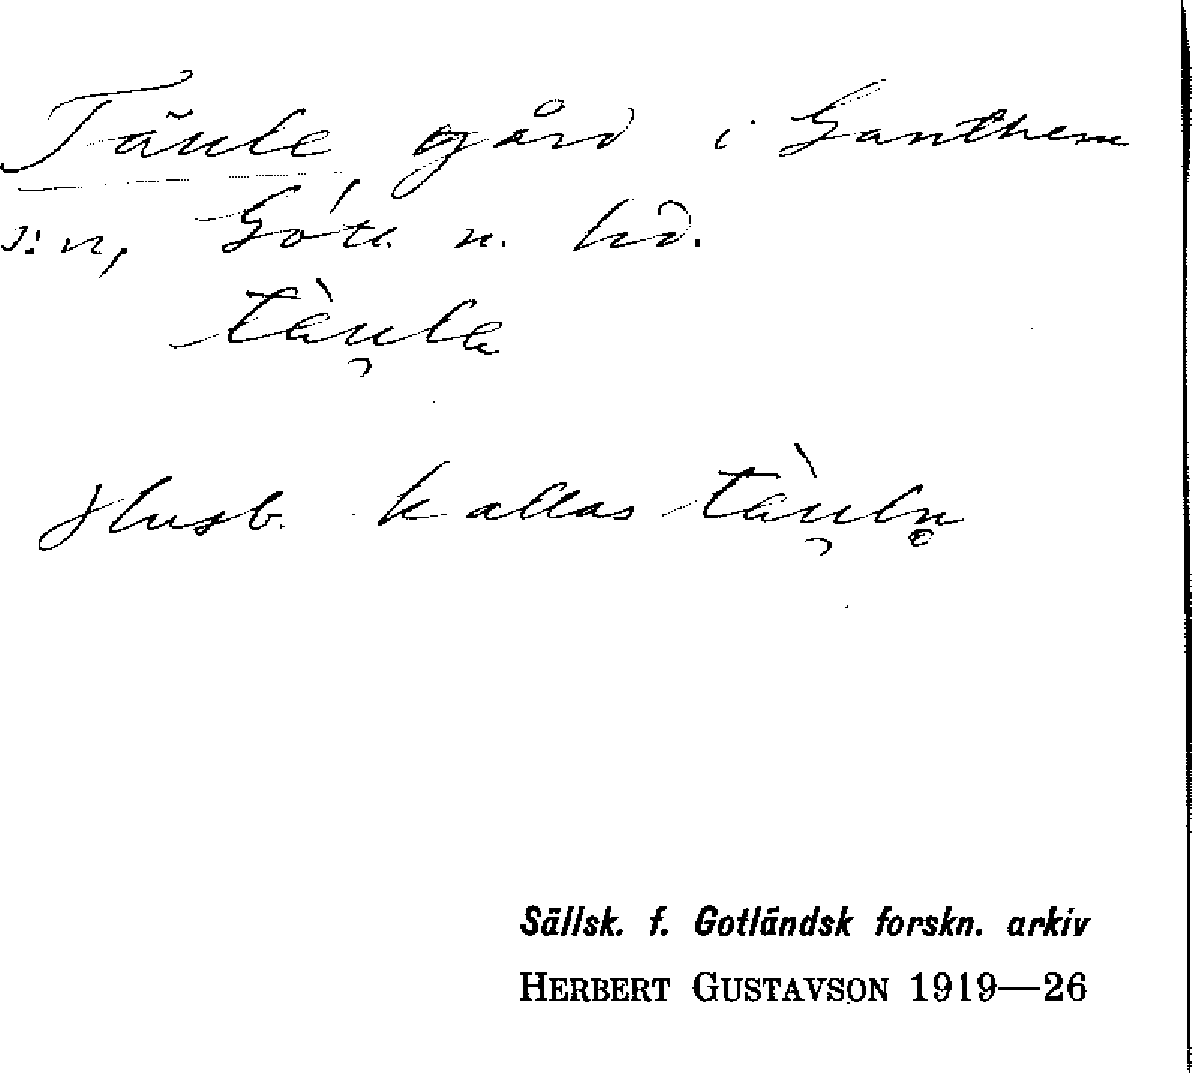 Täule gård i Ganthem
s:n, Gotl. n. hd.
tä̀u̯la
Husb. kallas tä̀u̯ln̥
Sällsk. f. Gotländsk forskn. arkiv
HERBERT GUSTAVSON 1919—26